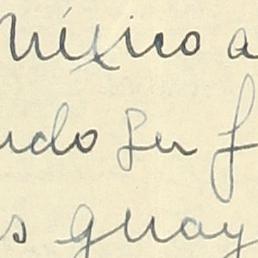 México a
ndo su f
s guay